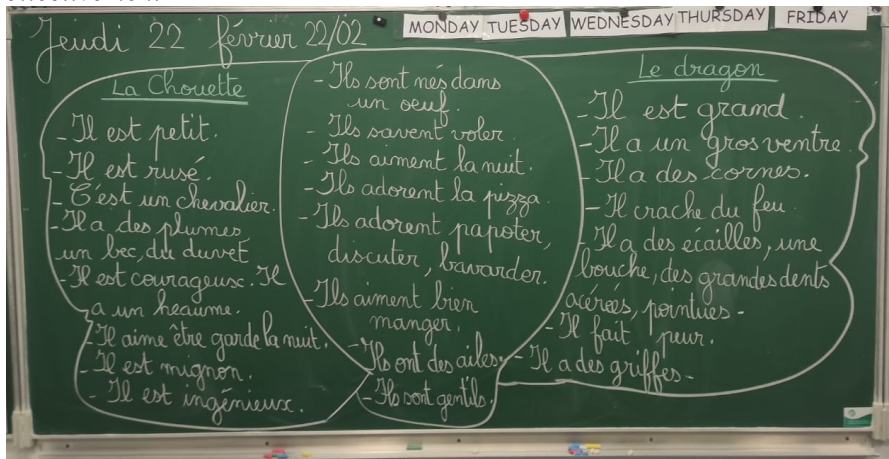 Jeudi 22 février 22/02
MONDAY TUESDAY WEDNESDAY THURSDAY FRIDAY
La Chouette
- Il est petit.
- Il est rusé.
- C'est un chevalier.
- Il a des plumes,
un bec, du duvet
- Il est courageux. Il
a un heaume.
- Il aime être garde la nuit.
- Il est mignon.
- Il est ingénieux.
- Ils sont nés dans
un oeuf.
- Ils savent voler.
- Ils aiment la nuit.
- Ils adorent la pizza.
- Ils adorent papoter,
discuter, bavarder.
- Ils aiment bien
manger.
- Ils ont des ailes.
- Ils sont gentils.
Le dragon
- Il est grand.
- Il a un gros ventre.
- Il a des cornes.
- Il crache du feu.
- Il a des écailles, une
bouche, des grandes dents
acérées, pointues.
- Il fait peur.
- Il a des griffes.